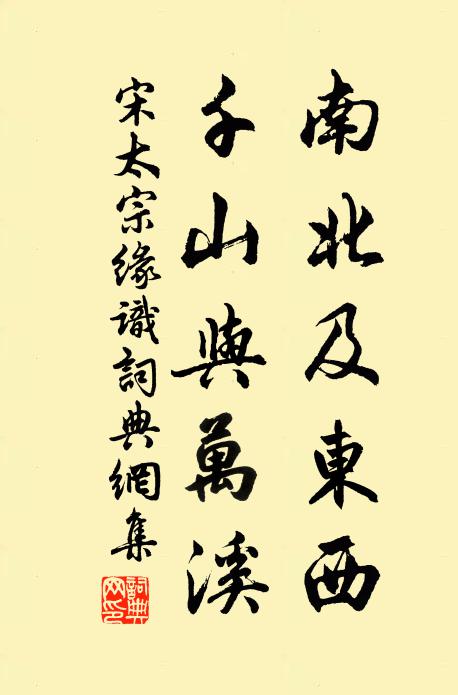 南北及東西
千山與萬溪
宋太宗緣識詞典網集
詞典網印